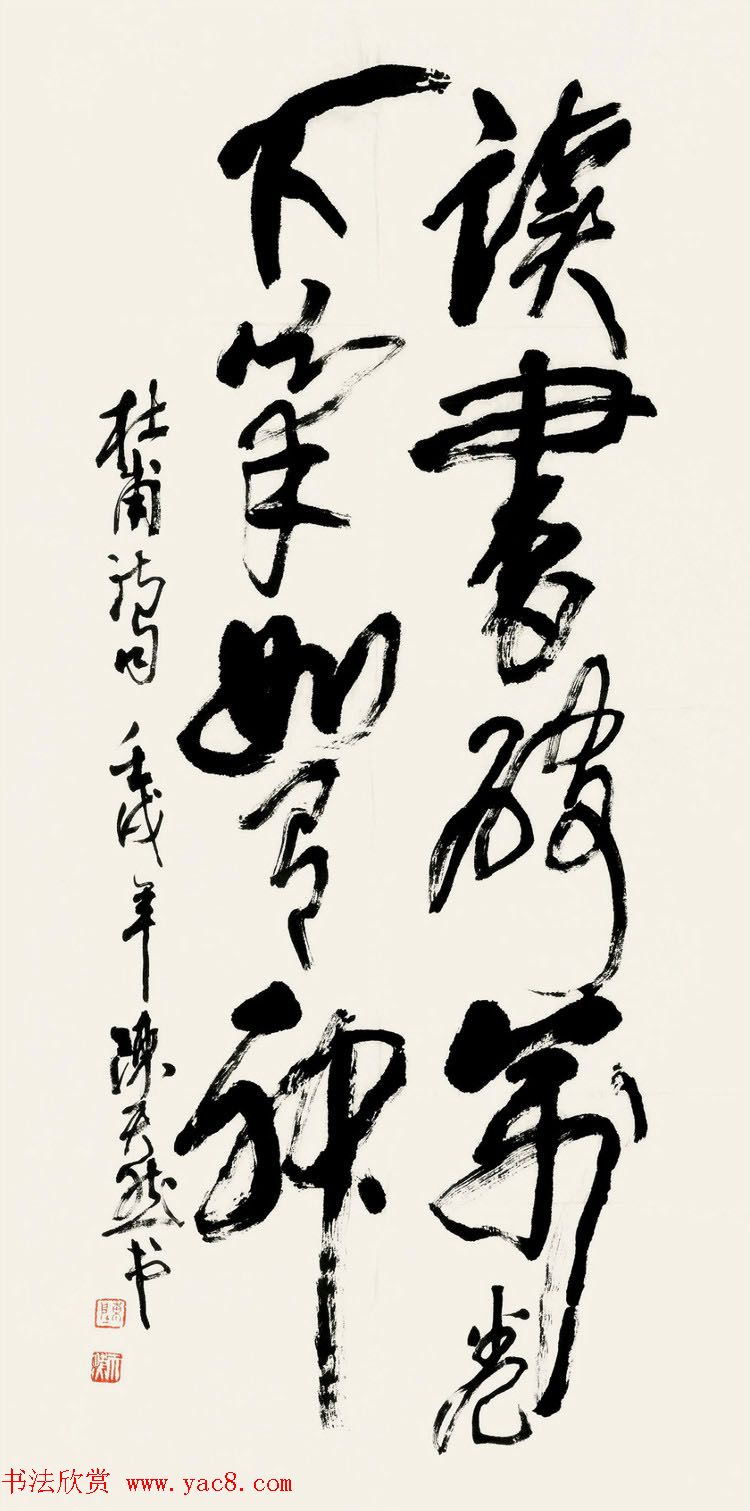 读书破萬卷
下笔如有神
杜甫诗句 壬戌年 陈天然书
书法欣赏 www.yac8.com